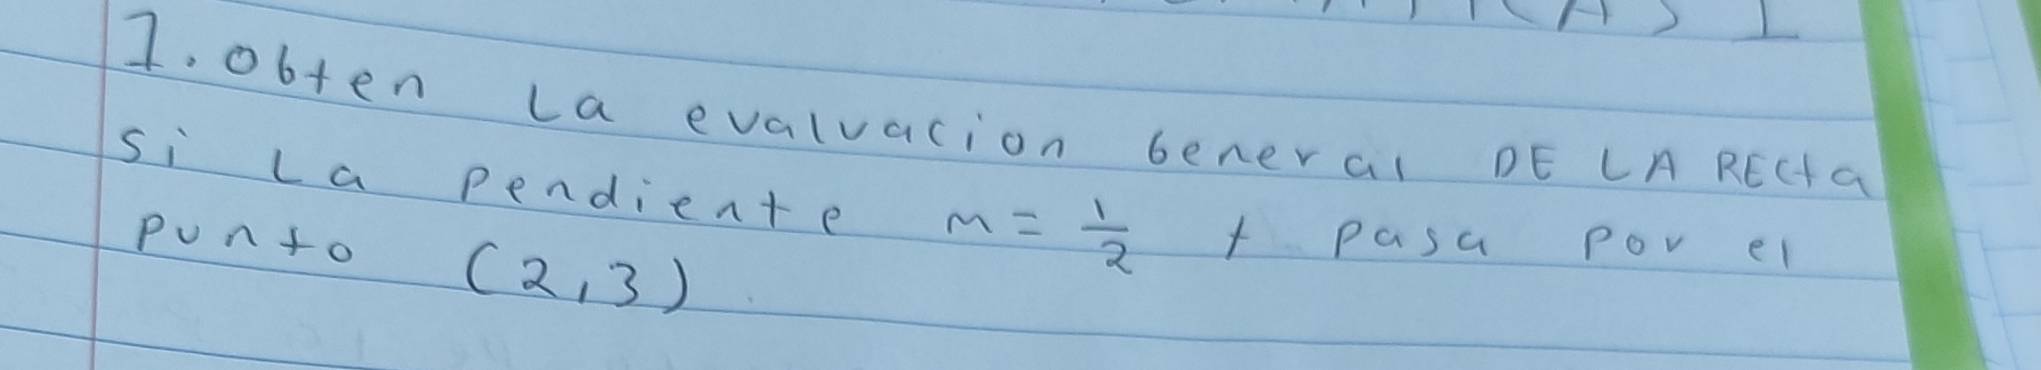 1. Obten La evaluacion General DE LA RECta
si La pendiente m = 1/2 y pasa por el
punto (2,3)